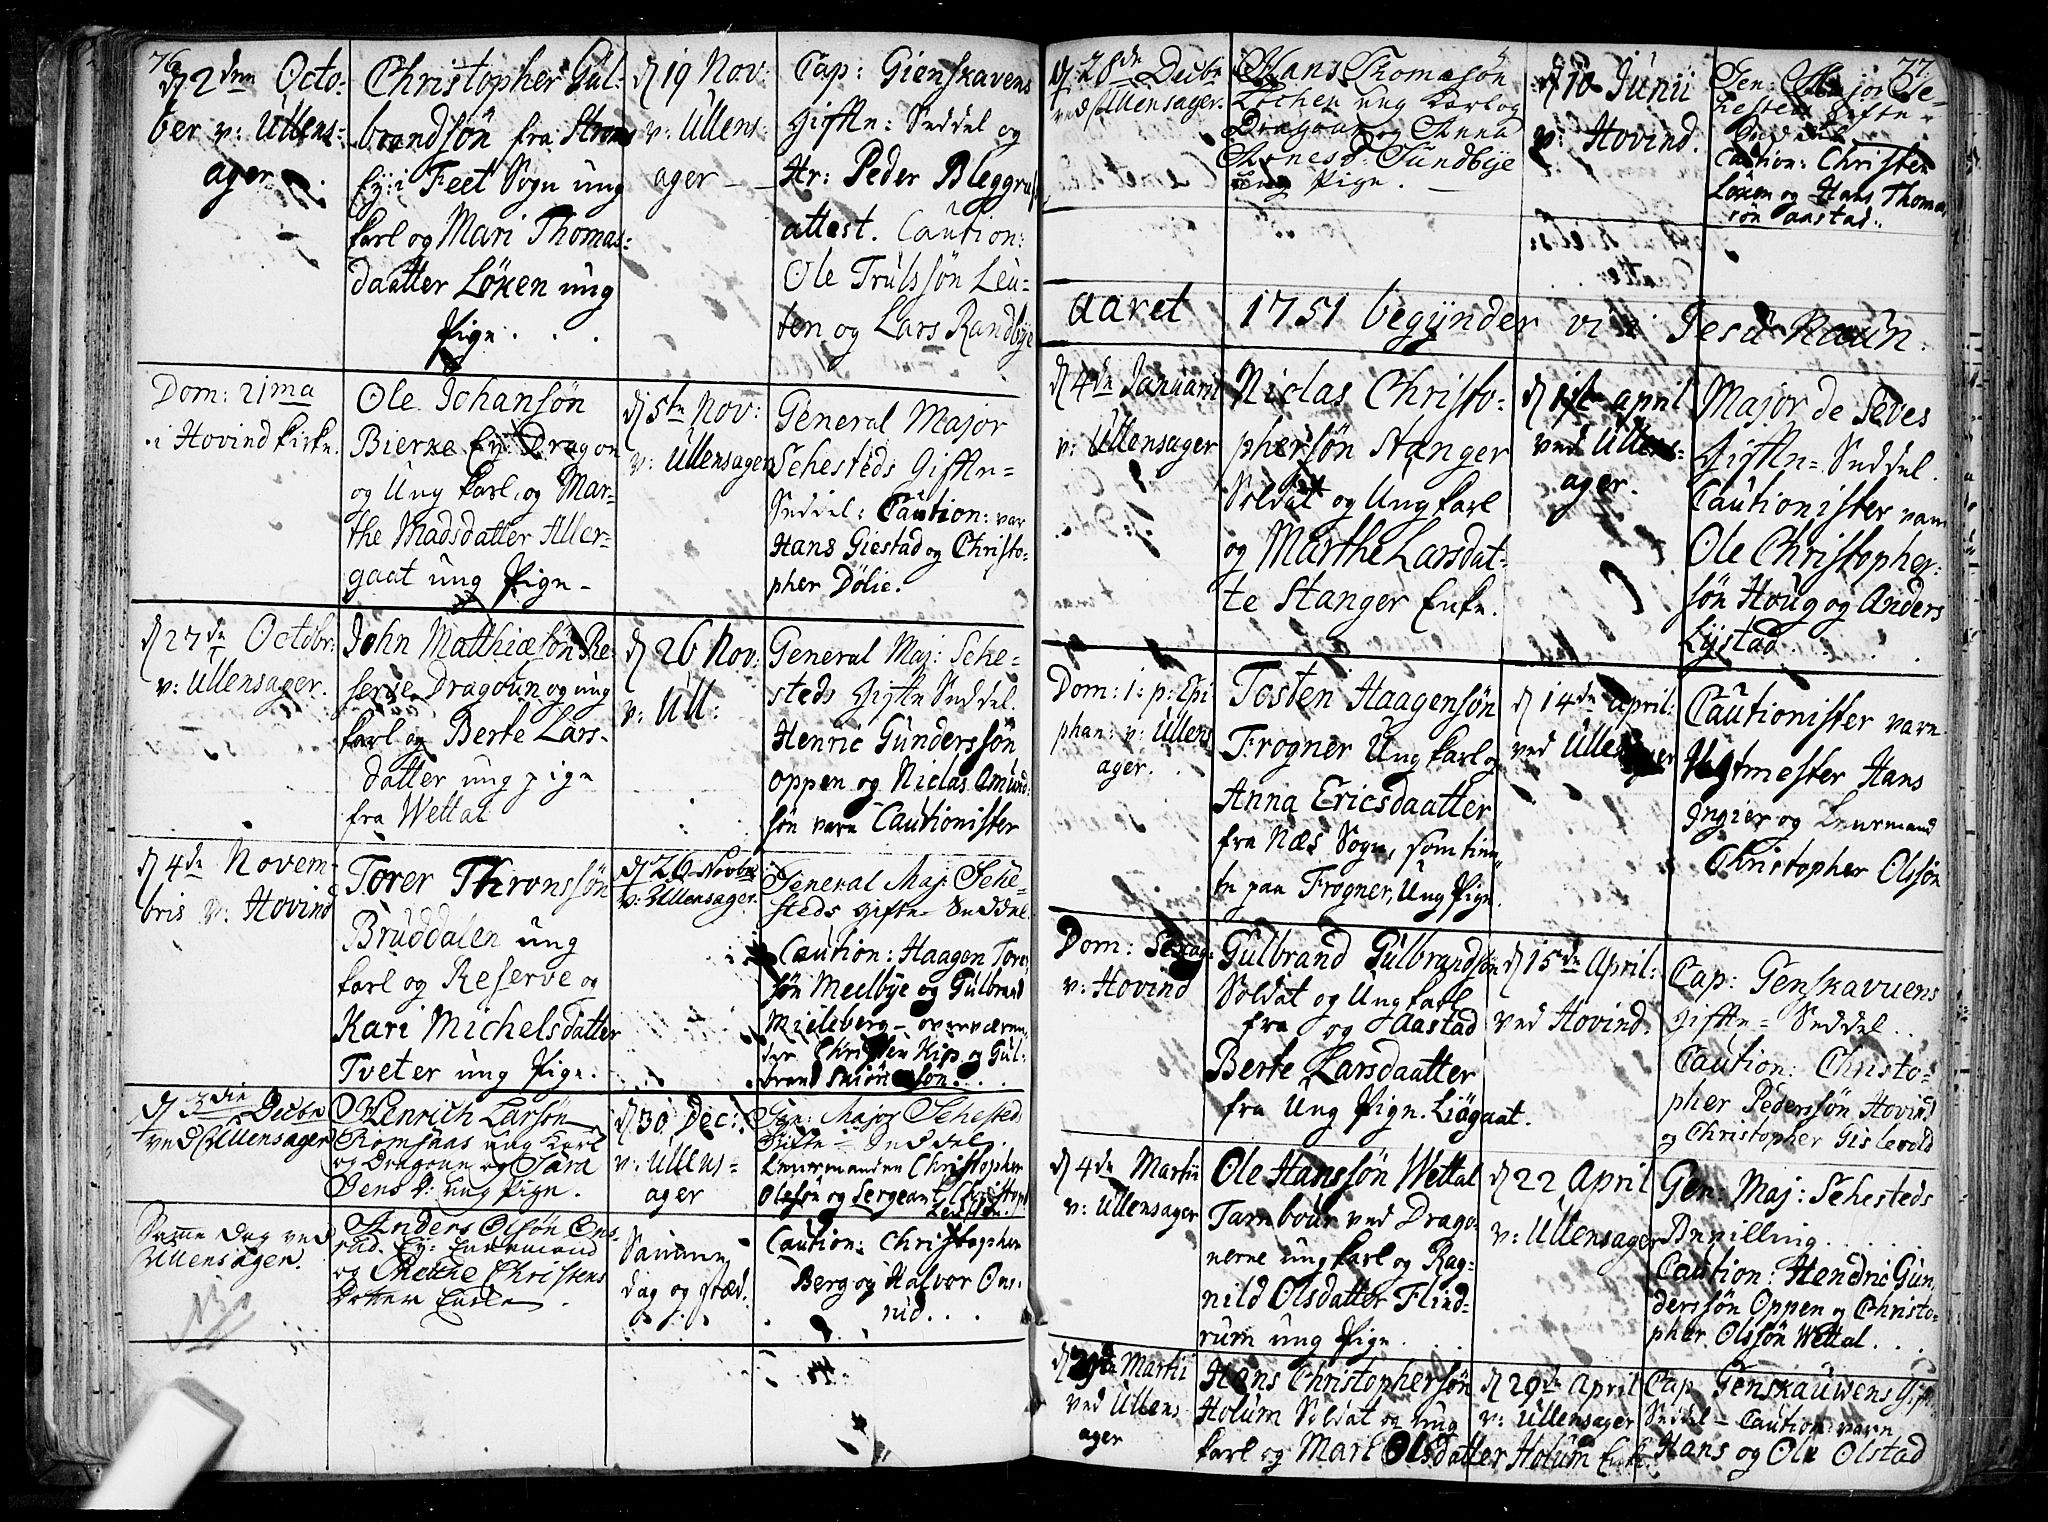 76
d 2den Octo-
ber v: Ullens-
ager
Christopher Gül-
brandsøn fra Strøms
Ey: i Feet Sogn ung
karl og Mari Thomas-
daatter Löken ung
Pige.
d 19 Nov:
v: Ullens-
ager
Cap: Gienskavens
Gifte-Seddel og
Hr: Peder Bleggrafs
attest. Caution:
Ole Trulssøn Leu-
ten og Lars Randbye
Dom: 21ma
i Hovind kirke.
Ole Johansøn
Bierke Ey: Dragon
og Ung karl, og Mar-
the Madsdatter Aller-
gaat ung Pige
d 5te Nov:
v: Ullensager
General Major
Sehesteds Gifte-
Seddel: Caution: var
Hans Giestad og Christo-
pher Dölie.
d 27de Octobr:
v: Ullensager.
John Matthiæsøn Re-
serve Dragoun og ung
karl og Berte Lars-
datter ung pige
fra Wettal
d 26 Nov:
v: Ull:
General Maj: Sehe-
steds Gifte Seddel.
Henric Gunderssøn
oppen og Niclas Amund-
søn vare Cautionister
d 4de Novem-
bris v: Hovind
Torer Thronssøn
Bruddalen ung
karl og Reserve og
Kari Michelsdatter
Tveter ung Pige.
d 26 Novbr
v: Ullensager.
General Maj: Sehe-
steds Gifte-Seddel
Caution: Haagen Tore-
søn Meelbye og Gulbrand
Mieleberg - overværen-
der Christen Kip og Gul-
brand
d 3die Decbr
ved Ullensager
Henrich Larsøn
Romsaas ung karl
og Dragoun og Sara
Jens D: ung Pige.
d 30 Dec:
v: Ullens-
ager
Gen: Major Sehesteds
Gifte-Seddel.
Leurmanden Christopher
Olssøn og Sergeant Christoph
Samme dag ved
Ullensager.
Anders Olsøn Ons-
rud. Ey: Leurmand
og Marthe Christens
Datter Enke.
Samme
dag og stæd.
Caution: Christopher
Berg og Halvor Ons-
rud.
77
d: 28de Decbr
ved Ullensager.
Hans Thomasøn
Lochen ung karl og
Dragoun og Anna
Arnesd: Sundbye
ung Pige.
d 10 Junii
v: Hovind.
Gen: Major Se-
hested Gifte-
Seddel
Caution: Christen
Löken og Hans Thomas-
søn Aastad.
Aaret 1751 begynder vi i Jesu Naun.
d 4de Januarii
v: Ullensager
Niclas Christo-
phersøn Stanger
Soldat og Ung karl
og Marthe Larsdat-
te Stanger Enke.
d 1ste april
ved Ullens-
ager.
Major de Seves
Gifte-Seddel.
Cautionister vare
Ole Christopher-
søn Houg og Anders
Lystad.
Dom: 1: p: Epi
phan: v: Ullens
ager.
Tosten Haagensøn
Frogner Ung karl og
Anna Ericsdaatter
fra Næs Sogn, som tien-
te paa Frogner, Ung Pige.
d 14de april:
ved Ullensager
Cautionister vare
Vagtmester Hans
Ingier og Leurmand
Christopher Olssøn
Dom: Sexag:
v: Hovind
Gülbrand Gülbrandsøn
Soldat og Ung karl
fra Aastad og
Berte Larsdaatter
fra Ung Pige. Liögaat.
d 15de April:
ved Hovind.
Cap: Genskavuens
Gifte-Seddel.
Caution: Christo-
pher Pederssøn Hovind
og Christopher Gislevold
d 4de Martii
v: Ullensager
Ole Hanssøn Wettal
Tambour ved Drago-
nerne ung karl og Rag-
nild Olsdatter Flind-
rum ung Pige.
d 22 April
v: Ullensager
Gen: Maj: Sehesteds
Bevilling.
Caution: Hendric Gun-
derssøn Oppen og Christo-
pher Olssøn Wettal.
Martii
ved Ullens-
ager
Hans Christophersøn
Holum Soldat og ung
karl og Mari Olsdatter Holum Enke
d 29de April
v: Ullensager
Cap Genskauwens Gifte
Seddel - Caution: vare
Hans og Ole Olstad